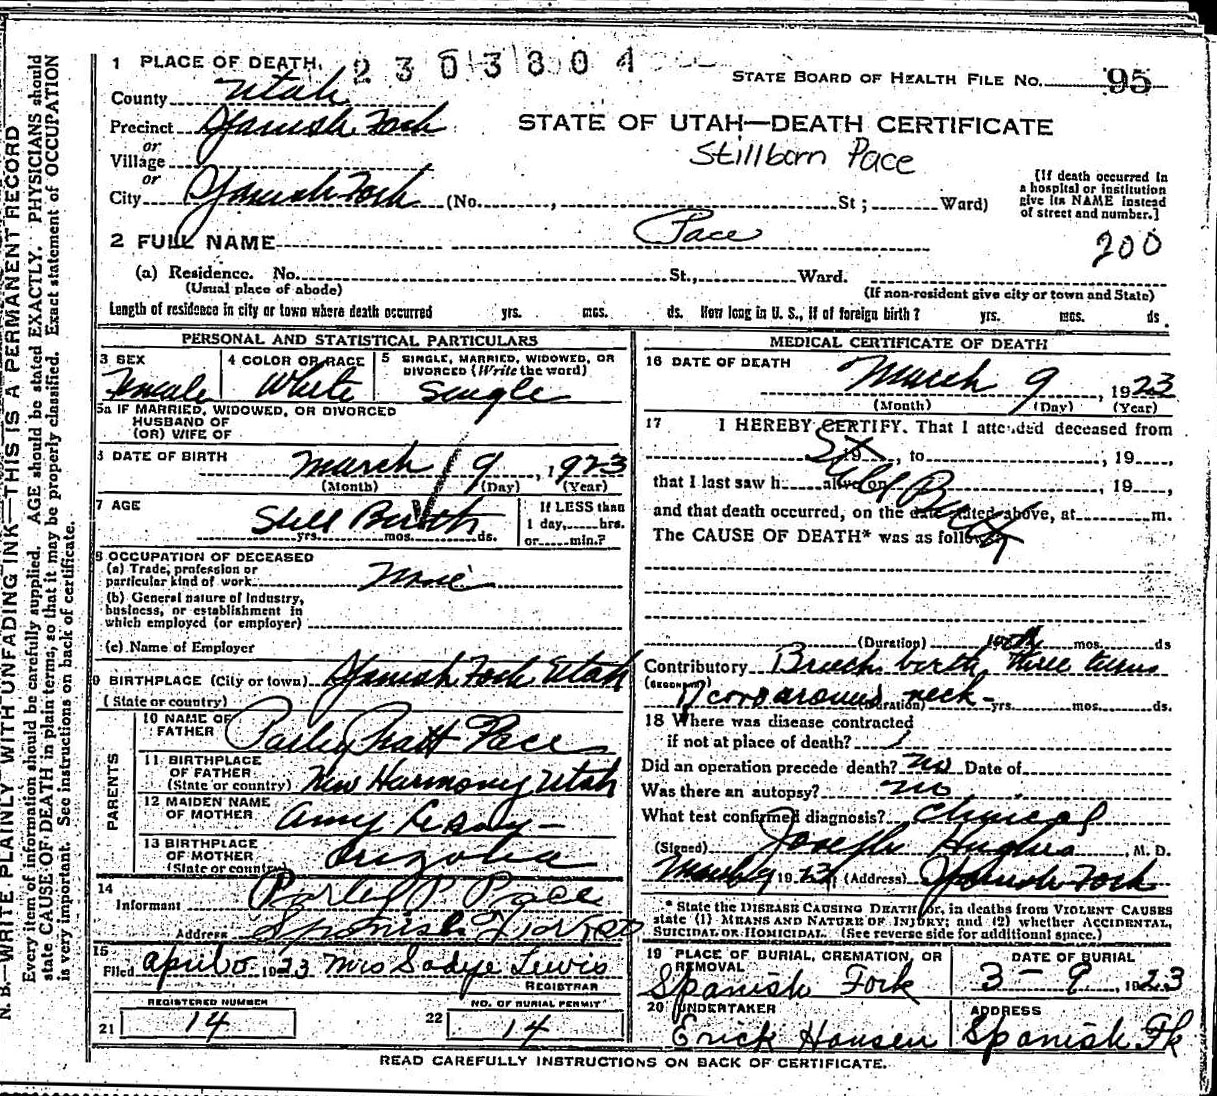 1 PLACE OF DEATH. 2303804
STATE BOARD OF HEALTH FILE NO. 95
County Utah
Precinct Spanish Fork
or
Village
or
City Spanish Fork (No. , St ; Ward)
STATE OF UTAH—DEATH CERTIFICATE
Stillborn Pace
[If death occurred in
a hospital or institution
give its NAME instead
of street and number.]
2 FULL NAME Pace
200
(a) Residence. No. St., Ward.
(Usual place of abode)
(If non-resident give city or town and State)
Length of residence in city or town where death occurred yrs. mos. ds. How long in U. S., if of foreign birth? yrs. mos. ds.
PERSONAL AND STATISTICAL PARTICULARS
3 SEX
Female
4 COLOR OR RACE
White
5 SINGLE, MARRIED, WIDOWED, OR
DIVORCED (Write the word)
Single
5a IF MARRIED, WIDOWED, OR DIVORCED
HUSBAND OF
(OR) WIFE OF
6 DATE OF BIRTH
March 9, 1923
(Month) (Day) (Year)
7 AGE
Still Birth
yrs. mos. ds.
If LESS than
1 day, hrs.
or min.?
8 OCCUPATION OF DECEASED
(a) Trade, profession or
particular kind of work None
(b) General nature of industry,
business, or establishment in
which employed (or employer)
(c) Name of Employer
9 BIRTHPLACE (City or town) Spanish Fork Utah
(State or country)
PARENTS
10 NAME OF
FATHER Parley Pratt Pace
11 BIRTHPLACE
OF FATHER
(State or country) New Harmony Utah
12 MAIDEN NAME
OF MOTHER Amy
13 BIRTHPLACE
OF MOTHER
(State or country) Arizona
14
Informant Parley P Pace
Address Spanish Fork
15
Filed April 5 1923 Mrs Sadye Lewis
REGISTRAR
21 REGISTERED NUMBER
14
22 NO. OF BURIAL PERMIT
14
MEDICAL CERTIFICATE OF DEATH
16 DATE OF DEATH
March 9, 1923
(Month) (Day) (Year)
17 I HEREBY CERTIFY. That I attended deceased from
19 , to , 19 ,
that I last saw h alive on , 19 ,
Still Birth
and that death occurred, on the date stated above, at m.
The CAUSE OF DEATH* was as follows:
(Duration) yrs. mos. ds
Contributory Breech birth, three turns
(SECONDARY) of cord around neck-
(Duration) yrs. mos. ds.
18 Where was disease contracted
if not at place of death?
Did an operation precede death? no Date of
Was there an autopsy? no
What test confirmed diagnosis? Clinical
(Signed) Joseph Hughes, M. D.
March 9 1923 (Address) Spanish Fork
* State the DISEASE CAUSING DEATH or, in deaths from VIOLENT CAUSES
state (1) MEANS AND NATURE OF INJURY; and (2) whether ACCIDENTAL,
SUICIDAL OR HOMICIDAL. (See reverse side for additional space.)
19 PLACE OF BURIAL, CREMATION, OR
REMOVAL
Spanish Fork
DATE OF BURIAL
3-9, 1923
20 UNDERTAKER
Erick Hansen
ADDRESS
Spanish Fk
READ CAREFULLY INSTRUCTIONS ON BACK OF CERTIFICATE.
N. B.—WRITE PLAINLY WITH UNFADING INK—THIS IS A PERMANENT RECORD
Every item of information should be carefully supplied. AGE should be stated EXACTLY. PHYSICIANS should
state CAUSE OF DEATH in plain terms, so that it may be properly classified. Exact statement of OCCUPATION
is very important. See instructions on back of certificate.